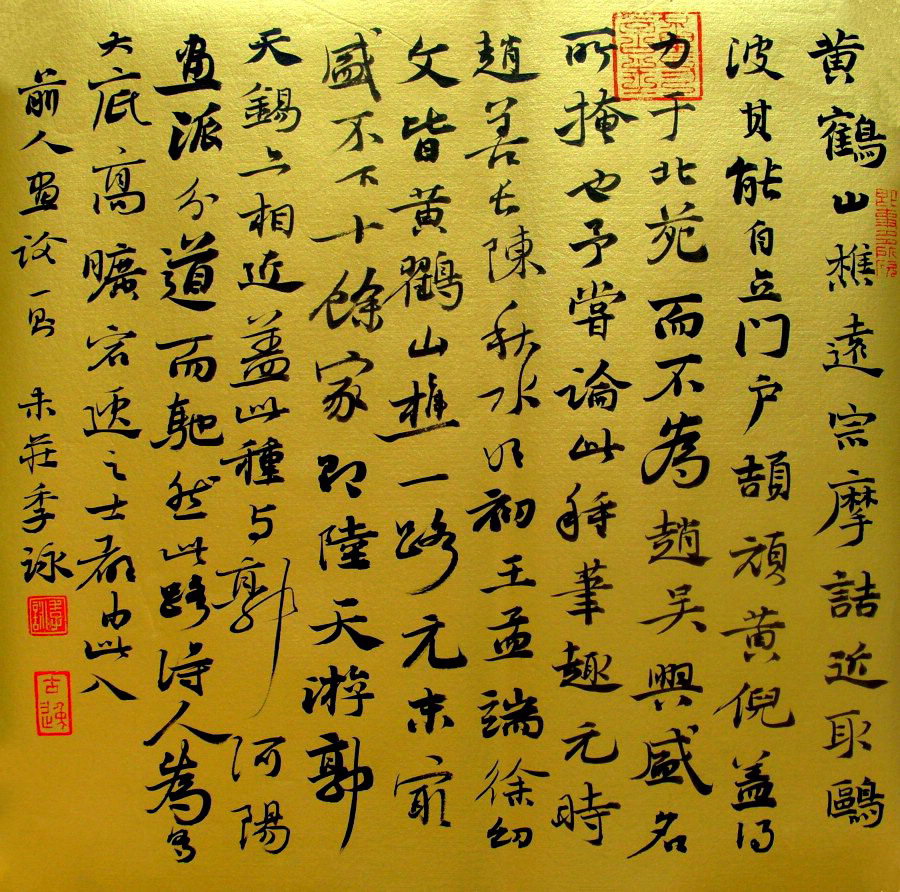 黄鶴山樵遠宗摩詰近取鷗
波其能自立门户頡頏黄倪盖得
力于北苑而不為趙吴興盛名
所掩也予嘗論此種筆趣元時
趙善長陳秋水明初王孟端徐幼
文皆黄鶴山樵一路元末最
盛不下十餘家即陸天游郭
天錫亦相近盖此種与郭河陽
畫派分道而馳然此路詩人為多
大底高曠宕逸之士都由此入
前人畫論一則 未莊季詠